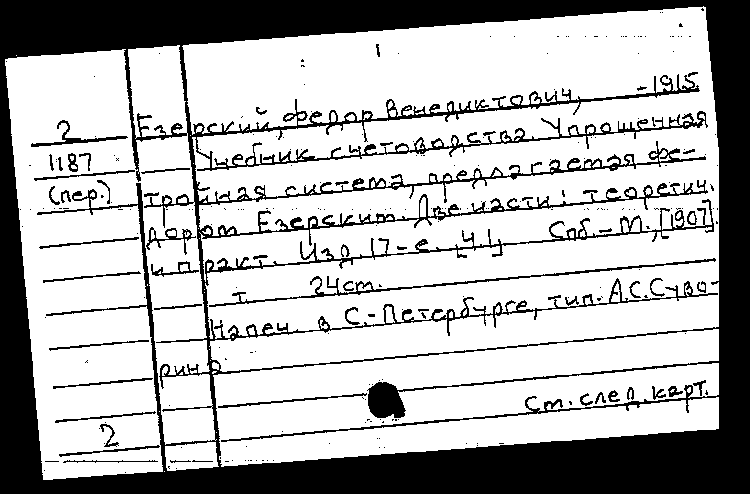 1
2 Езерский, Федор Венедиктович, -1915
1187 Учебник счетоводства. Упрощенная
(пер.) тройная система, предлагаемая Фе-
дором Езерским. Две части: теоретич.
и практ. Изд. 17-е. [Ч.1] Спб.-М., [1907].
т. 24 см.
Напеч. в С.-Петербурге, тип. А.С.Суво-
рина
См. след. карт.
2